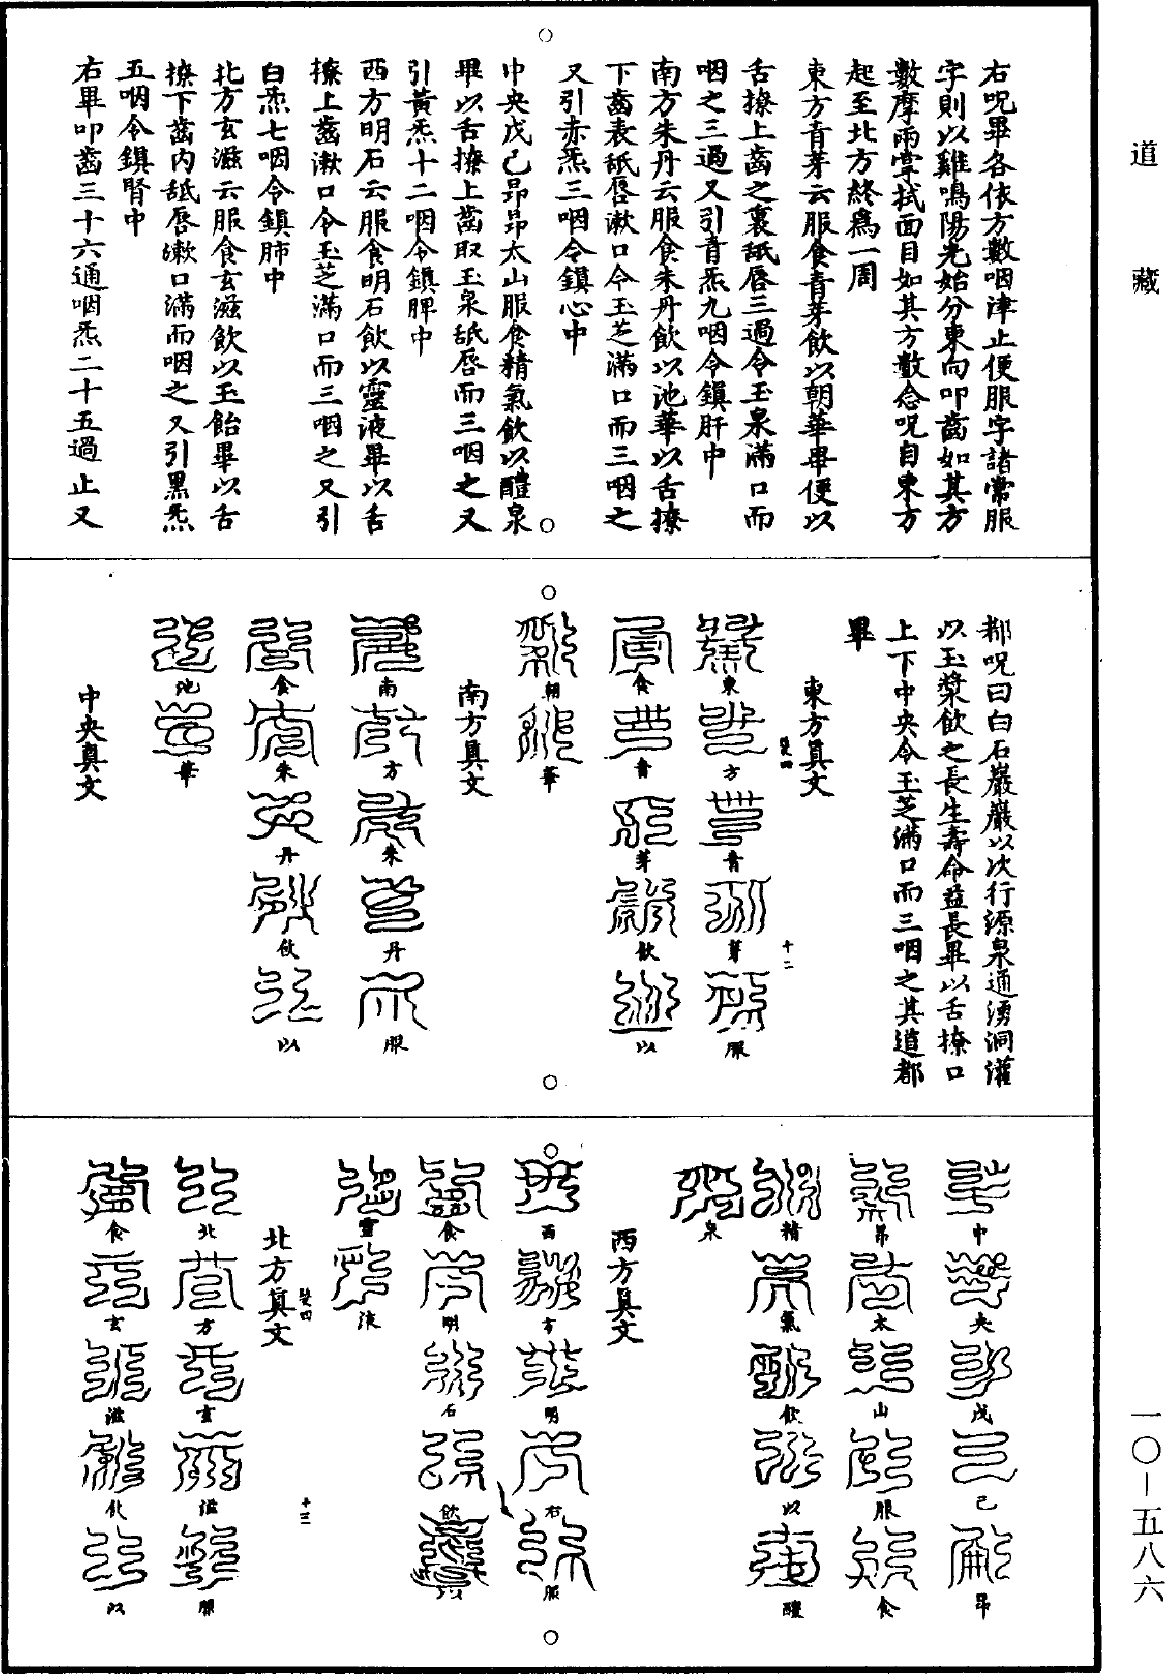 道藏
右呪畢各依方數咽津止便服字諸常服
字則以雞鳴陽光始分東向叩齒如其方
數摩兩掌拭面目如其方數念呪自東方
起至北方終爲一周
東方青芽云服食青芽飲以朝華畢便以
舌撩上齒之裏舐唇三過令玉泉滿口而
咽之三過又引青炁九咽令鎮肝中
南方朱丹云服食朱丹飲以池華以舌撩
下齒表舐唇漱口令玉芝滿口而三咽之
又引赤炁三咽令鎮心中
中央戊己昂昂太山服食精氣飲以醴泉
畢以舌撩上齒取玉泉舐唇而三咽之又
引黃炁十二咽令鎮脾中
西方明石云服食明石飲以靈液畢以舌
撩上齒漱口令玉芝滿口而三咽之又引
白炁七咽令鎮肺中
北方玄滋云服食玄滋飲以玉飴畢以舌
撩下齒內舐唇漱口滿而咽之又引黑炁
五咽令鎮腎中
右畢叩齒三十六通咽炁二十五過止又
都呪曰白石巖巖以次行源泉通湧洞灌
以玉漿飲之長生壽命益長畢以舌撩口
上下中央令玉芝滿口而三咽之其道都
畢
東方真文
十二
東方青芽服
食青芽飲以
朝華
南方真文
南方朱丹服
食朱丹飲以
池華
中央真文
中央戊己昂
昂太山服食
精氣飲以醴
泉
西方真文
西方明石服
食明石飲以
靈液
北方真文
十三
北方玄滋服
食玄滋飲以
一〇—五八六